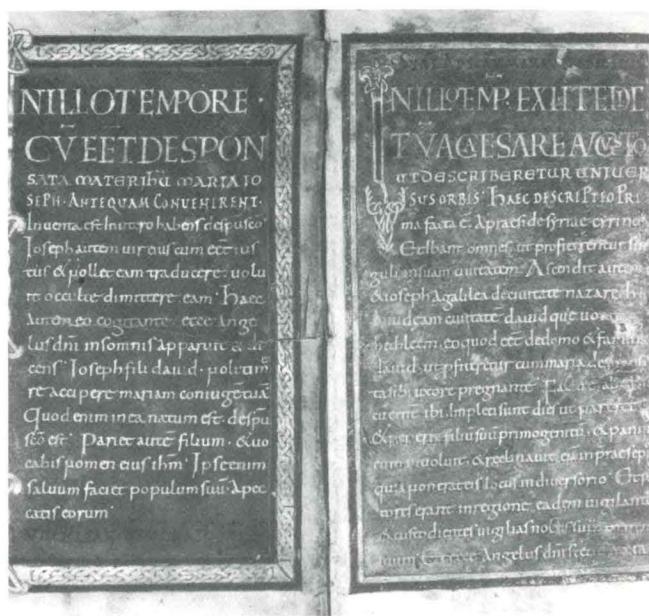 NILLOTEMPORE ·
CŪ EĒT DESPON
SATA MATER IHŪ MARIA IO
SEPH · ANTEQUAM CONVENIRENT ·
Inventa est in utero habens de spu sco ·
Ioseph autem vir eius cum eēt ius
tus & nollet eam traducere · volu
it occulte dimittere eam · Haec
autem eo cogitante · ecce Ange
lus dnī in somnis apparuit & di
cens · Ioseph fili david · noli tim
re accipere mariam coniugē tuā ·
Quod enim in ea natum est · de spū
scō est · Pariet autē filium · & vo
cabis nomen eius ihm̄ · Ipse enim
salvum faciet populum suū · A pec
catis eorum ·
IN ILLO TEMP̄ · EXIIT EDIC
TŪ A CAESARE AUGUSTO
UT DESCRIBERETUR UNIVER
SUS ORBIS · HAEC DESCRIPTIO PRI
ma facta ē · A praeside syriae cyrino
Et ibant omnes ut profiterentur sin
guli in suam civitatem · Ascendit autem
& ioseph A galilea de civitate nazareth
in iudeam civitatē david que vocatur
bethleem · eo quod eēt de domo & familia
david · ut pfiteretur cum maria desponsa
ta sibi uxore pregnante ·
ibi · Impleti sunt dies ut pareret
& peperit filiū suū primogenitū · & pannis
eum involvit · & reclinavit eum in praesepio
quia non erat eis locus in diversorio · Et pas
tores erant in regione eadem vigilantes
& custodientes vigilias noctis supra
suum · Et ecce Angelus dnī stetit iuxta